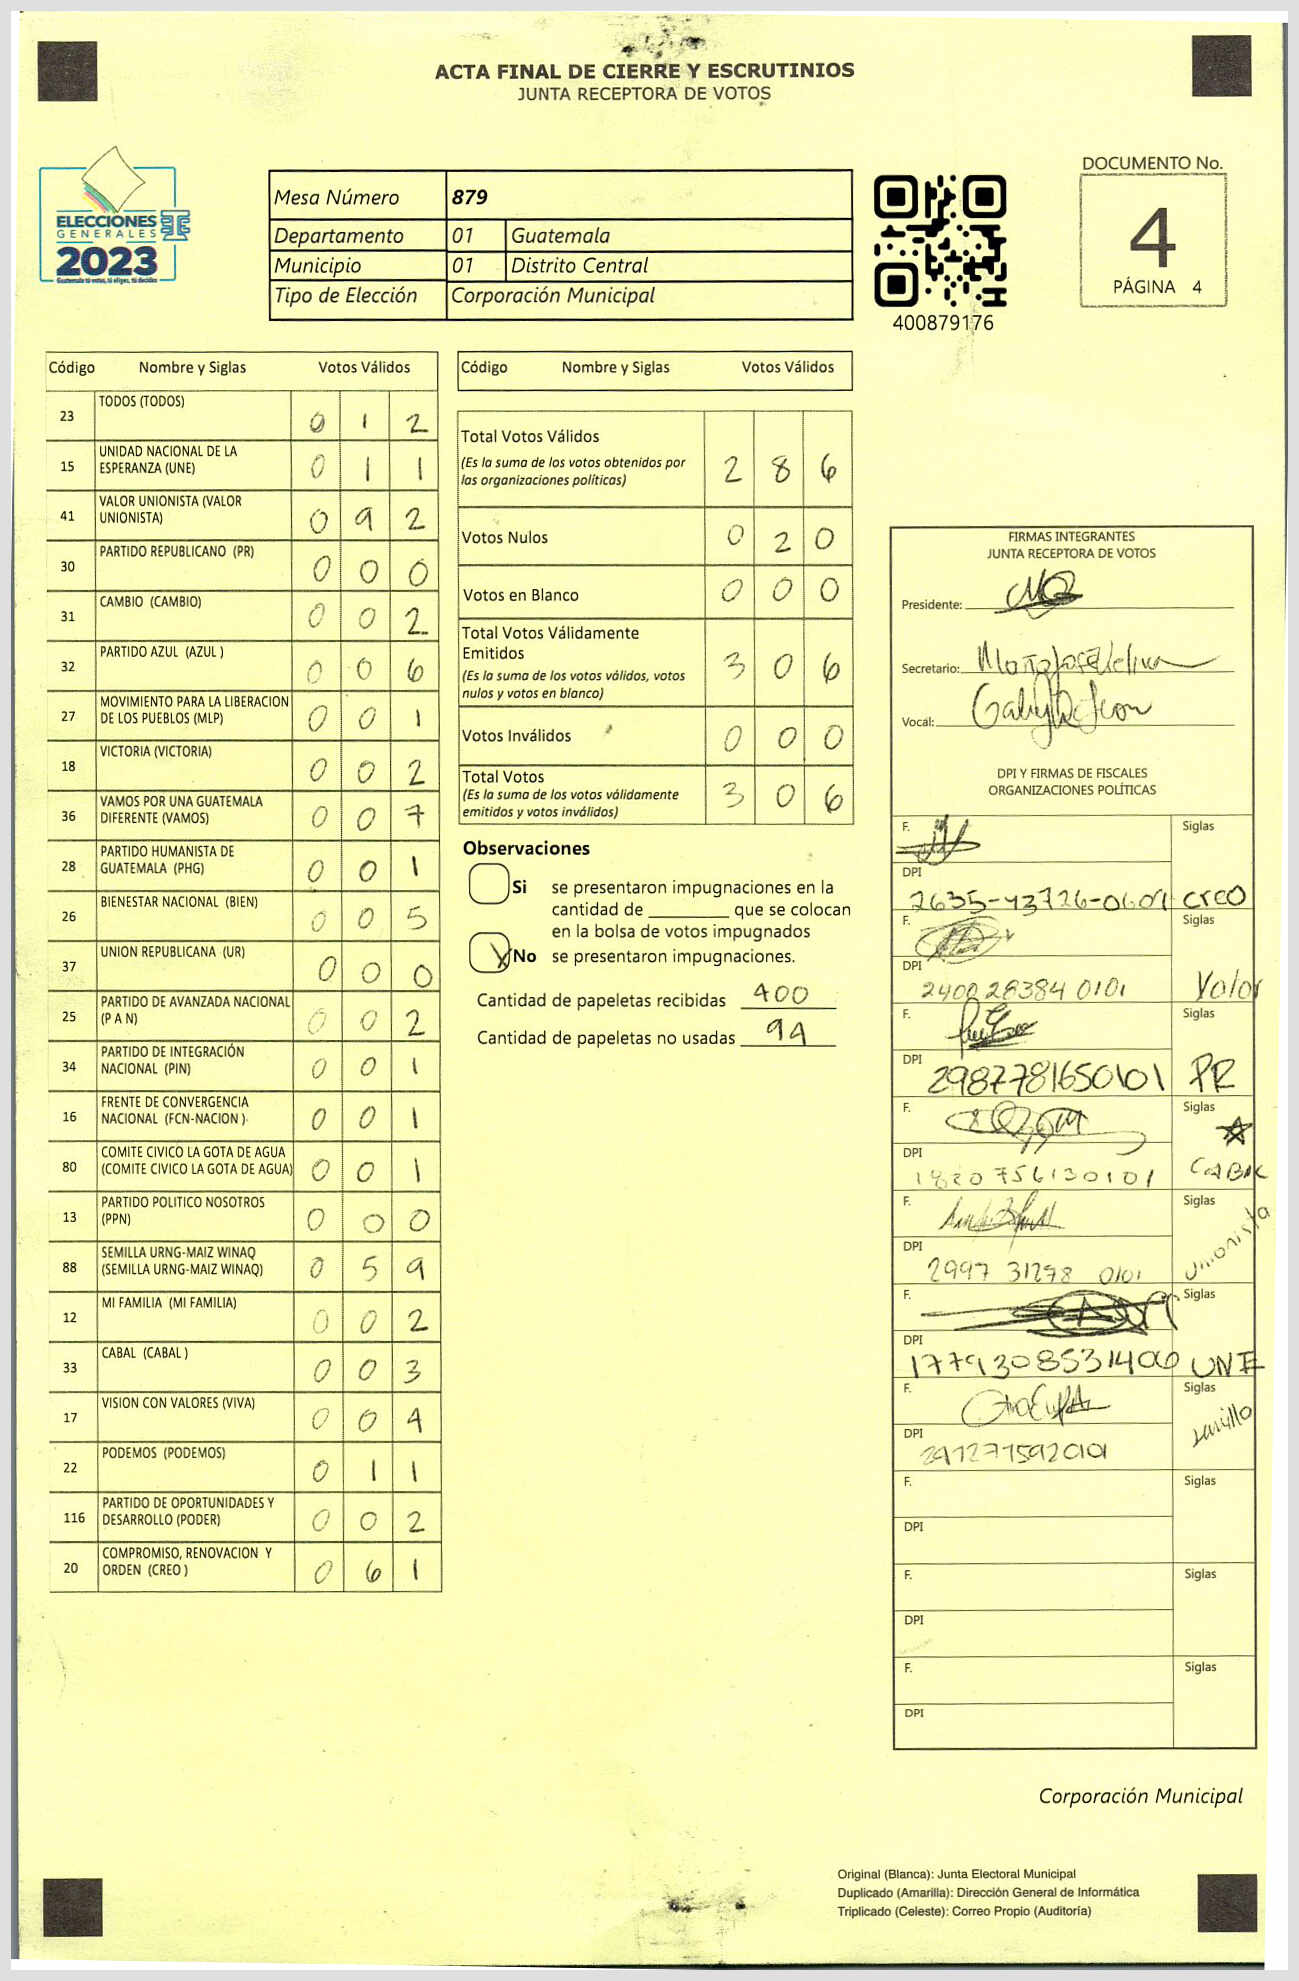 ACTA FINAL DE CIERRE Y ESCRUTINIOS
JUNTA RECEPTORA DE VOTOS
ELECCIONES
GENERALES
2023
Guatemala tú votas, tú eliges, tú decides
Mesa Número 879
Departamento 01 Guatemala
Municipio 01 Distrito Central
Tipo de Elección Corporación Municipal
400879176
DOCUMENTO No.
4
PÁGINA 4
Código Nombre y Siglas Votos Válidos
23 TODOS (TODOS) 0 1 2
15 UNIDAD NACIONAL DE LA
ESPERANZA (UNE) 0 1 1
41 VALOR UNIONISTA (VALOR
UNIONISTA) 0 9 2
30 PARTIDO REPUBLICANO (PR) 0 0 0
31 CAMBIO (CAMBIO) 0 0 2
32 PARTIDO AZUL (AZUL ) 0 0 6
27 MOVIMIENTO PARA LA LIBERACION
DE LOS PUEBLOS (MLP) 0 0 1
18 VICTORIA (VICTORIA) 0 0 2
36 VAMOS POR UNA GUATEMALA
DIFERENTE (VAMOS) 0 0 7
28 PARTIDO HUMANISTA DE
GUATEMALA (PHG) 0 0 1
26 BIENESTAR NACIONAL (BIEN) 0 0 5
37 UNION REPUBLICANA (UR) 0 0 0
25 PARTIDO DE AVANZADA NACIONAL
(P A N) 0 0 2
34 PARTIDO DE INTEGRACIÓN
NACIONAL (PIN) 0 0 1
16 FRENTE DE CONVERGENCIA
NACIONAL (FCN-NACION ) 0 0 1
80 COMITE CIVICO LA GOTA DE AGUA
(COMITE CIVICO LA GOTA DE AGUA) 0 0 1
13 PARTIDO POLITICO NOSOTROS
(PPN) 0 0 0
88 SEMILLA URNG-MAIZ WINAQ
(SEMILLA URNG-MAIZ WINAQ) 0 5 9
12 MI FAMILIA (MI FAMILIA) 0 0 2
33 CABAL (CABAL ) 0 0 3
17 VISION CON VALORES (VIVA) 0 0 4
22 PODEMOS (PODEMOS) 0 1 1
116 PARTIDO DE OPORTUNIDADES Y
DESARROLLO (PODER) 0 0 2
20 COMPROMISO, RENOVACION Y
ORDEN (CREO ) 0 6 1
Código Nombre y Siglas Votos Válidos
Total Votos Válidos
(Es la suma de los votos obtenidos por
las organizaciones políticas) 2 8 6
Votos Nulos 0 2 0
Votos en Blanco 0 0 0
Total Votos Válidamente
Emitidos
(Es la suma de los votos válidos, votos
nulos y votos en blanco) 3 0 6
Votos Inválidos 0 0 0
Total Votos
(Es la suma de los votos válidamente
emitidos y votos inválidos) 3 0 6
Observaciones
Si se presentaron impugnaciones en la
cantidad de ________ que se colocan
en la bolsa de votos impugnados
X No se presentaron impugnaciones.
Cantidad de papeletas recibidas 400
Cantidad de papeletas no usadas 94
FIRMAS INTEGRANTES
JUNTA RECEPTORA DE VOTOS
Presidente:
Secretario:
Vocal: Gaby De Leon
DPI Y FIRMAS DE FISCALES
ORGANIZACIONES POLÍTICAS
F. Siglas
DPI
2635-43726-0601 creo
F. Siglas
DPI
2400 28384 0101 Valor
F. Siglas
DPI
2987781650101 PR
F. Siglas
DPI
1820756130101
F. Siglas
DPI
2997 31278 0101 Unionista
F. Siglas
DPI
1779308531406 UNE
F. Siglas
DPI
F. Siglas
DPI
F. Siglas
DPI
F. Siglas
DPI
Corporación Municipal
Original (Blanca): Junta Electoral Municipal
Duplicado (Amarilla): Dirección General de Informática
Triplicado (Celeste): Correo Propio (Auditoría)